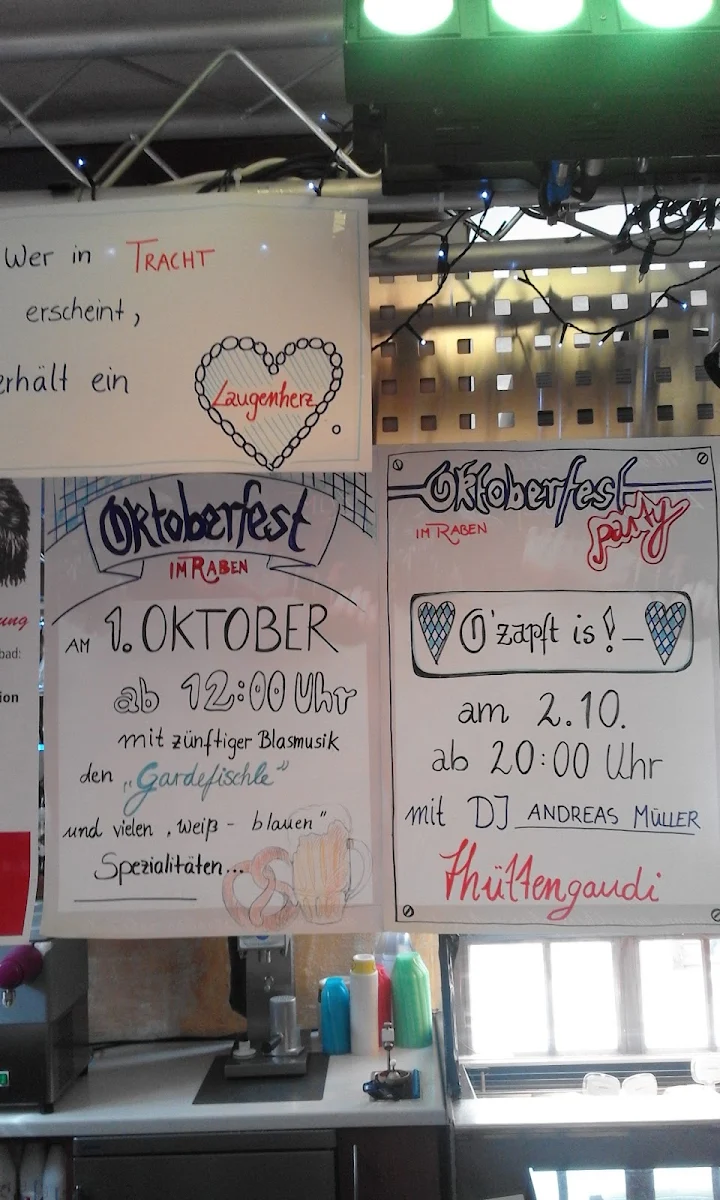 Wer in TRACHT
erscheint,
erhält ein
Laugenherz.
Oktoberfest
IM RABEN
AM 1. OKTOBER
ab 12:00 Uhr
mit zünftiger Blasmusik
den „Gardefischle"
und vielen „weiß - blauen"
Spezialitäten...
Oktoberfest
party
IM RABEN
O'zapft is!
am 2.10.
ab 20:00 Uhr
mit DJ ANDREAS MÜLLER
Hüttengaudi
ung
bad:
ion